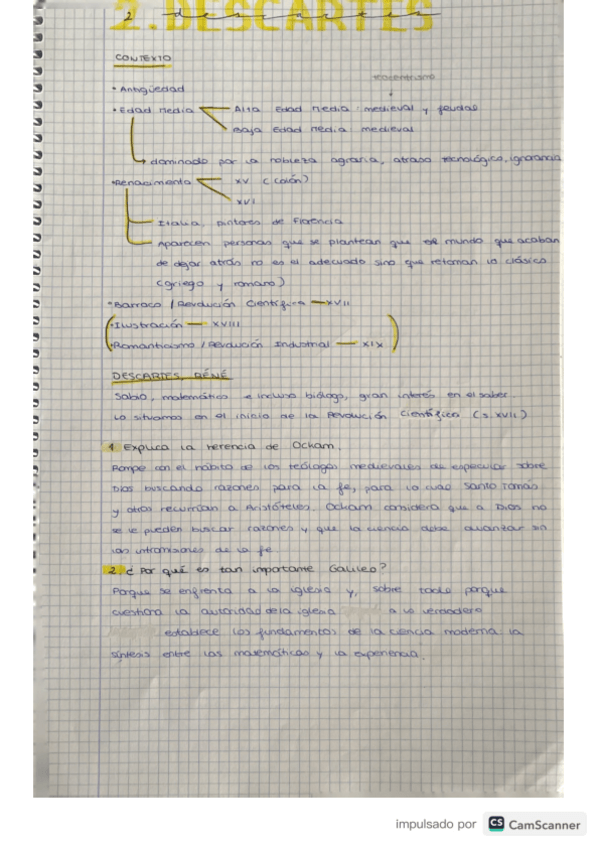 2. DESCARTES
descartes
CONTEXTO
• Antigüedad
teocentrismo
• Edad Media Alta Edad Media: medieval y feudal
Baja Edad Media medieval
dominado por la nobleza agraria, atraso tecnológico, ignorancia
• Renacimiento XV (Colón)
XVI
Italia, pintores de Florencia
Aparecen personas que se plantean que el mundo que acaban
de dejar atrás no es el adecuado sino que retoman lo clásico
(griego y romano)
• Barroco / Revolución Científica — XVII
• Ilustración — XVIII
• Romanticismo / Revolución Industrial — XIX
DESCARTES, RÉNÉ
Sabio, matemático e incluso biólogo, gran interés en el saber.
Lo situamos en el inicio de la Revolución Científica (s. XVII)
1. Explica la herencia de Ockam.
Rompe con el hábito de los teólogos medievales de especular sobre
Dios buscando razones para la fe, para lo cual Santo Tomás
y otros recurrían a Aristóteles. Ockam considera que a Dios no
se le pueden buscar razones y que la ciencia debe avanzar sin
las intromisiones de la fe.
2. ¿Por qué es tan importante Galileo?
Porque se enfrenta a la iglesia y, sobre todo porque
cuestiona la autoridad de la iglesia a lo verdadero
establece los fundamentos de la ciencia moderna la
síntesis entre las matemáticas y la experiencia.
impulsado por CS CamScanner